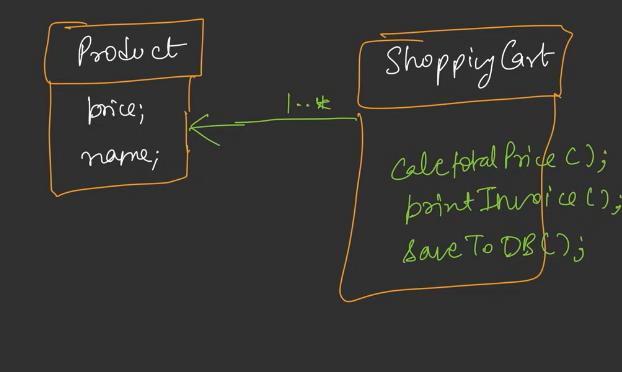 Product
price;
name;
1..*
ShoppingCart
calctotalPrice();
printInvoice();
saveToDB();